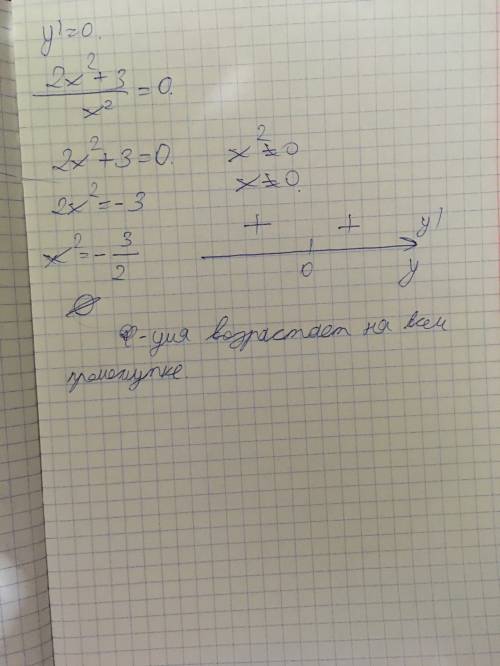 y'=0.
2x²+3
/ x² = 0.
2x²+3=0.
x²≠0
x≠0.
2x²=-3
x²=-3/2
+ + y'
0 y
∅
Ф-ция возрастает на всем
промежутке.